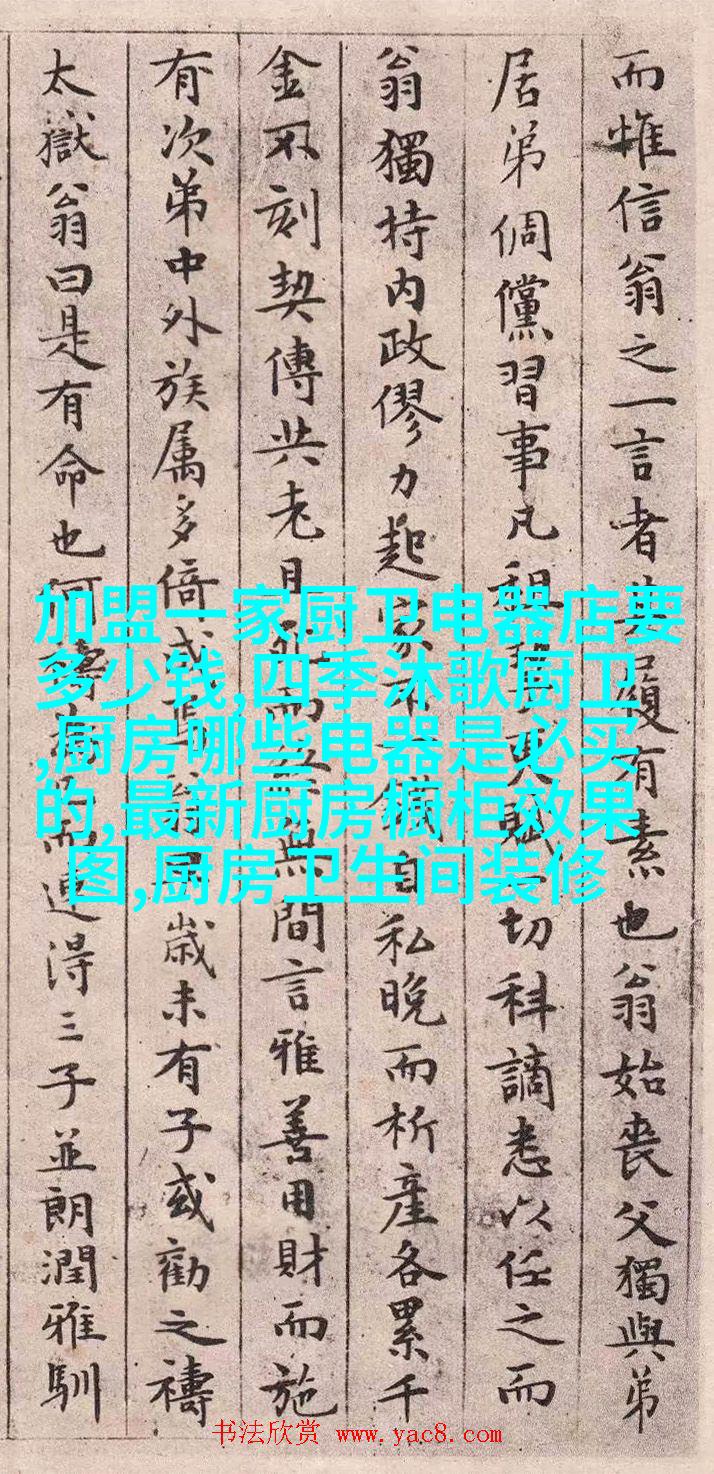 而惟信翁之一言者其名復有素也翁始喪父獨與弟
居弟倜儻習事凡租更賦一切科謫悉以任之而
翁獨持内政僇力起家不一錢自私晚而析產各累千
金不刻契傳共老且死而無間言雅善用財而施
有次第中外族属多倚成焉翁歲未有子或勸之禱
太嶽翁曰是有命也何禱為而連得三子並朗潤雅馴
加盟一家厨卫电器店要
多少钱,四季沐歌厨卫
,厨房哪些电器是必买
的,最新厨房橱柜效果
图,厨房卫生间装修
书法欣赏 www.yac8.com